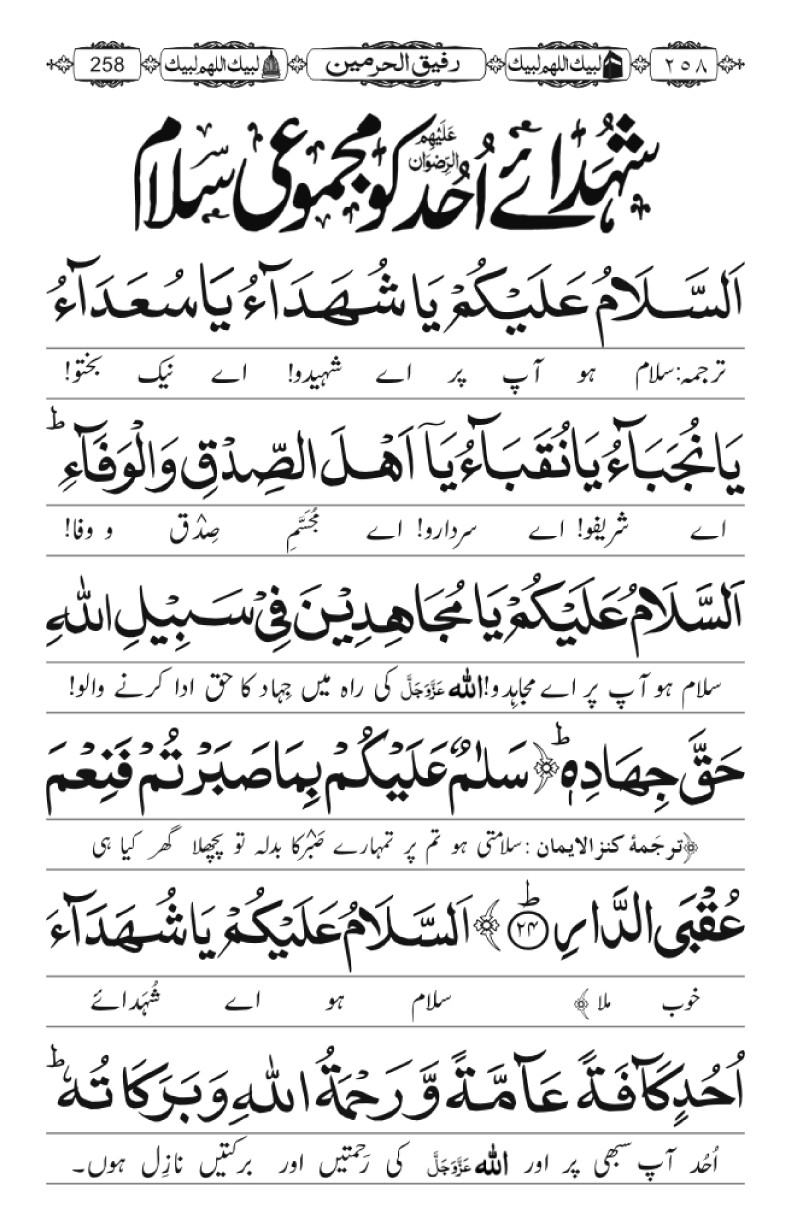 ٢٥٨ لبيك اللهم لبيك رفیق الحرمین لبيك اللهم لبيك 258
شہدائے اُحُد عَلَیْہِمُ الرِّضْوَان کو مجموعی سلام
اَلسَّلَامُ عَلَيْكُمْ يَا شُهَدَآءُ يَا سُعَدَآءُ
ترجمہ:سلام ہو آپ پر اے شہیدو! اے نیک بختو!
يَا نُجَبَآءُ يَا نُقَبَآءُ يَآ اَهْلَ الصِّدْقِ وَالْوَفَآءِ ؕ
اے شریفو! اے سردارو! اے مُجَسَّمِ صِدْق و وفا!
اَلسَّلَامُ عَلَيْكُمْ يَا مُجَاهِدِيْنَ فِیْ سَبِيْلِ اللهِ
سلام ہو آپ پر اے مجاہِدو!اللہ عَزَّوَجَلَّ کی راہ میں جِہاد کا حق ادا کرنے والو!
حَقَّ جِهَادِهٖ ؕ ﴿سَلٰمٌ عَلَيْكُمْ بِمَا صَبَرْتُمْ فَنِعْمَ
﴿ترجَمۂ کنز الایمان :سلامتی ہو تم پر تمہارے صَبْر کا بدلہ تو پچھلا گھر کیا ہی
عُقْبَى الدَّارِ ؕ ﴿۲۴﴾ اَلسَّلَامُ عَلَيْكُمْ يَا شُهَدَآءَ
خوب ملا ﴾ سلام ہو اے شُہَدائے
اُحُدٍ كَآفَةً عَآمَّةً وَّ رَحْمَةُ اللهِ وَ بَرَكَاتُهٗ ؕ
اُحُد آپ سبھی پر اور اللہ عَزَّوَجَلَّ کی رَحمتیں اور برکتیں نازِل ہوں۔